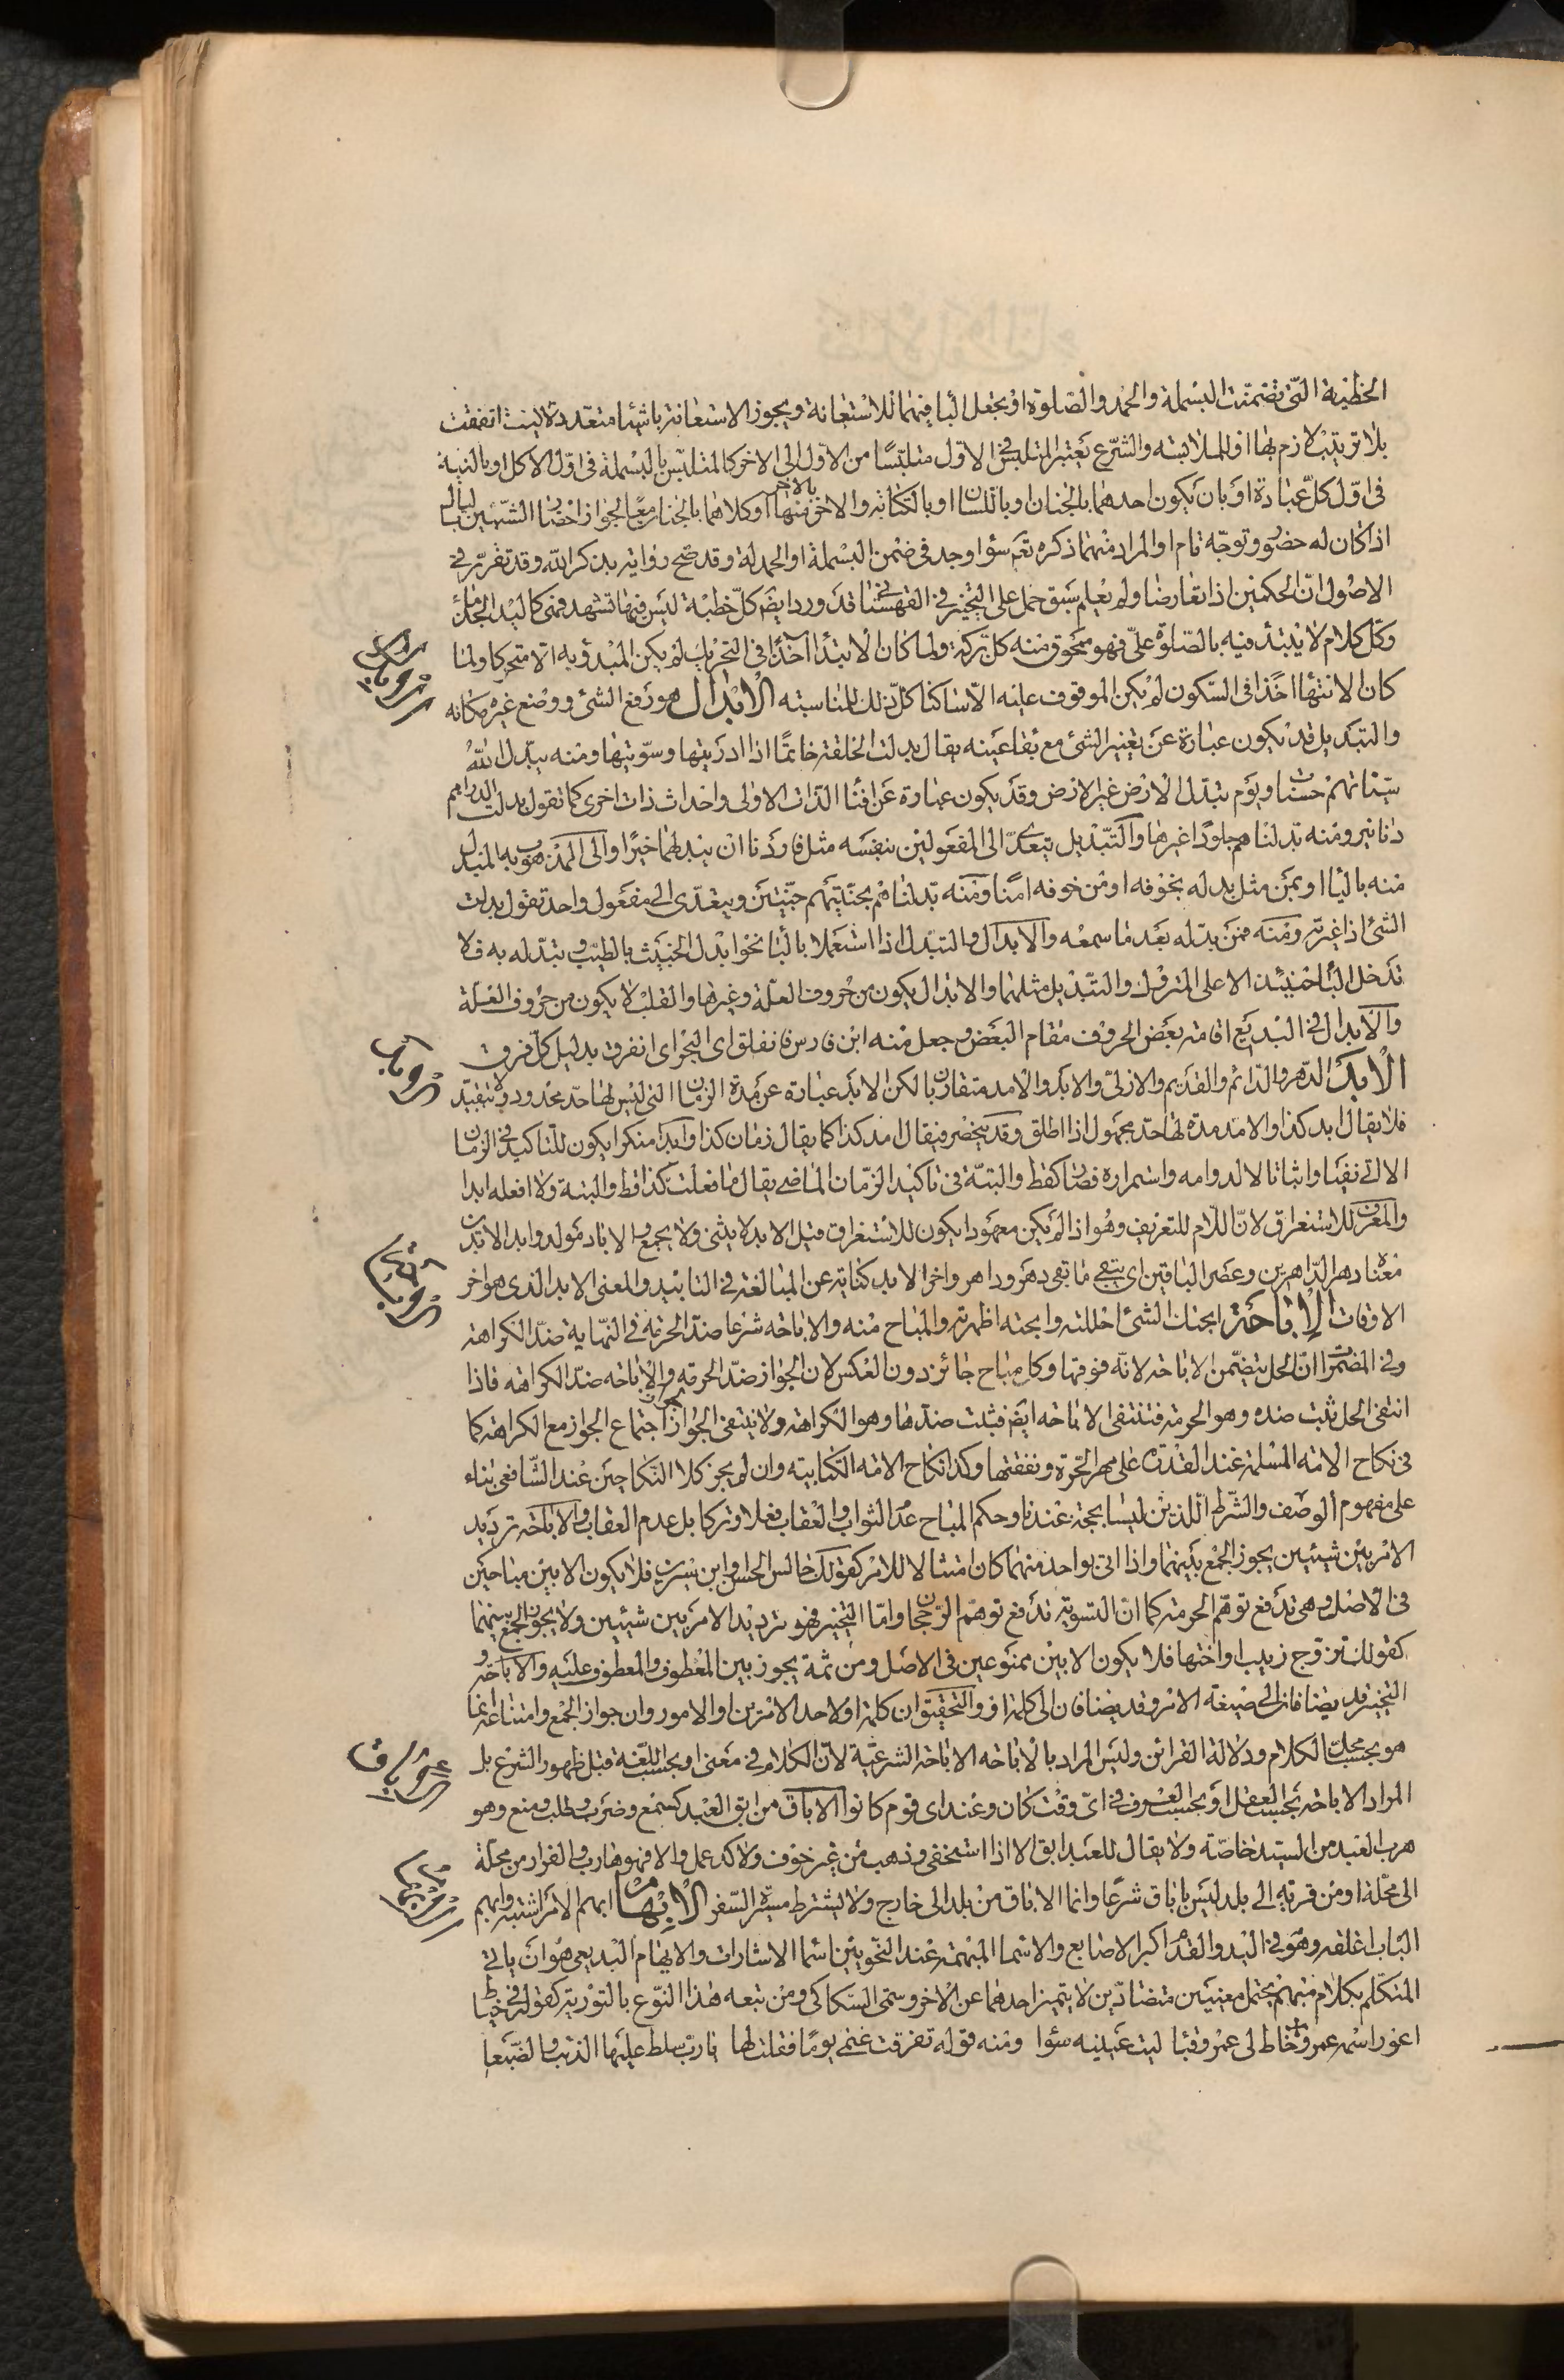 الخطبة التي تضمنت البسملة والحمد والصلوة او يجعل الباء فيهما للاستعانة ويجوز الاستعانة باشياء متعددة لاسيما اتفقت
بلا ترتيب لازم بها او للملابسة والشرع يعتبر المتلبس في الاول متلبسا من الاول الى الاخر كالمتلبس بالبسملة في اول الاكل او بالنية
في اول كل عبادة او بان يكون احدهما بالجنان او باللسان او بالكتابة والاخر منها بالاخر او كلاهما بالجنان معا لجواز احضار الشيئين بالبال
اذا كان له حضور وتوجه تام او المراد منهما ذكره تعم سواء وجد في ضمن البسملة او الحمدلة وقد صح رواية بذكر الله وقد تقرر في
الاصول ان الحكمين اذا تعارضا ولم يعلم سبق حمل على التخيير في القهستاني قد ورد ايضم كل خطبة ليس فيها تشهد فهي كاليد الجذماء
وكل كلام لا يبتدء فيه بالصلوة علي فهو ممحوق منه كل بركة ولما كان الابتداء اخذا في التحريك لم يكن المبدو به الا متحركا ولما
كان الانتهاء اخذا في السكون لم يكن الموقوف عليه الا ساكنا كل ذلك للمناسبة الابدال هو رفع الشئ ووضع غيره مكانه
والتبديل قد يكون عبارة عن تغيير الشئ مع بقاء عينه يقال بدلت الحلقة خاتما اذا ادرتها وسويتها ومنه يبدل الله
سيئاتهم حسنات ويوم تبدل الارض غير الارض وقد يكون عبارة عن افناء الذات الاولى واحداث ذات اخرى كما تقول بدلت الدراهم
دنانير ومنه بدلناهم جلودا غيرها والتبديل يتعدى الى المفعولين بنفسه مثل فاردنا ان يبدلهما خيرا والى المذهوب به المبدل
منه بالباء او بمن مثل بدله بخوفه او من خوفه امنا ومنه بدلناهم بجنتيهم جنتين ويتعدى الى مفعول واحد تقول بدلت
الشئ اذا غيرته ومنه فمن بدله بعد ما سمعه والابدال والتبدل اذا استعملا بالباء نحو ابدل الخبيث بالطيب وتبدله به فلا
تدخل الباء حينئذ الا على المتروك والتبديل مثلهما والابدال يكون من حروف العلة وغيرها والقلب لا يكون من حروف العلة
والابدال في البديع اقامة بعض الحروف مقام البعض وجعل منه ابن فارس فانفلق اي البحر اي انفرق بدليل كل فرق
الابد الدهر والدائم والقديم والازلي والابد والامد متقاربان لكن الابد عبارة عن مدة الزمان التي ليس لها حد محدود ولا تتقيد
فلا يقال ابد كذا والامد مدة لها حد مجهول اذا اطلق وقد ينحصر فيقال امد كذا كما يقال زمان كذا وابدا منكرا يكون للتاكيد في الزمان
الاتي نفيا واثباتا لا لدوامه واستمراره فصار كقط والبتة في تاكيد الزمان الماضي يقال ما فعلت كذا قط والبتة ولا افعله ابدا
والمعرف للاستغراق لان اللام للتعريف وهو اذا لم يكن معهودا يكون للاستغراق قيل الابد لا يثنى ولا يجمع والاباد مولد وابد الابدين
معناه دهر الداهرين وعصر الباقين اي يبقى ما بقي دهر وداهر واخر الابد كناية عن المبالغة في التابيد والمعنى الابد الذي هو اخر
الاوقات الاباحة ابحتك الشئ احللته وابحته اظهرته والمباح منه والاباحة شرعا ضد الحرمة في النهاية ضد الكراهة
وفي المضمرات ان الحل يتضمن الاباحة لانه فوقها وكل مباح جائز دون العكس لان الجواز ضد الحرمة والاباحة ضد الكراهة فاذا
انتفى الحل ثبت ضده وهو الحرمة فتنتفى الاباحة ايضم فثبت ضدها وهو الكراهة ولا ينتفى الجواز لجواز اجتماع الجواز مع الكراهة كما
في نكاح الامة المسلمة عند القدرة على مهر الحرة ونفقتها وكذا نكاح الامة الكتابية وان لم يجز كلا النكاحين عند الشافعي بناء
على مفهوم الوصف والشرط اللذين ليسا بحجة عندنا وحكم المباح عدم الثواب والعقاب فعلا وتركا بل عدم العقاب والاباحة ترديد
الامر بين شيئين يجوز الجمع بينهما واذا اتى بواحد منهما كان امتثالا للامر كقولك جالس الحسن او ابن سيرين فلا يكون الا بين مباحين
في الاصل وهي تدفع توهم الحرمة كما ان التسوية تدفع توهم الرجحان واما التخيير فهو ترديد الامر بين شيئين ولا يجوز الجمع بينهما
كقولك تزوج زينب او اختها فلا يكون الا بين ممنوعين في الاصل ومن ثمة يجوز بين المعطوف والمعطوف عليه والاباحة و
التخيير قد يضافان الى صيغة الامر وقد يضافان الى كلمة او والتحقيق ان كلمة او لاحد الامرين او الامور وان جواز الجمع وامتناعه انما
هو بحسب محل الكلام ودلالة القرائن وليس المراد بالاباحة الاباحة الشرعية لان الكلام في معنى او بحسب اللغة قبل ظهور الشرع بل
المراد الاباحة بحسب العقل او بحسب العرف في اي وقت كان وعند اي قوم كانوا الاباق من ابق العبد كسمع وضرب وطلب ومنع وهو
هرب العبد من السيد خاصة ولا يقال للعبد ابق الا اذا استخفى وذهب من غير خوف ولا كد عمل والا فهو هارب والفرار من محلة
الى محلة او من قرية الى بلد ليس باباق شرعا وانما الاباق من بلد الى خارج ولا يشترط مسيرة السفر الابهام ابهم الامر اشتبه وابهم
الباب اغلقه وهو في اليد والقدم اكبر الاصابع والاسماء المبهمة عند النحويين اسماء الاشارات والابهام البديعي هو ان ياتي
المتكلم بكلام مبهم يحتمل معنيين متضادين لا يتميز احدهما عن الاخر وسمى السكاكي ومن تبعه هذا النوع بالتورية كقوله في خياط
اعور اسمه عمرو خاط لي عمرو قباء ليت عينيه سواء ومنه قوله تفرقت غنمي يوما فقلت لها يا رب سلط عليها الذئب والضبعا